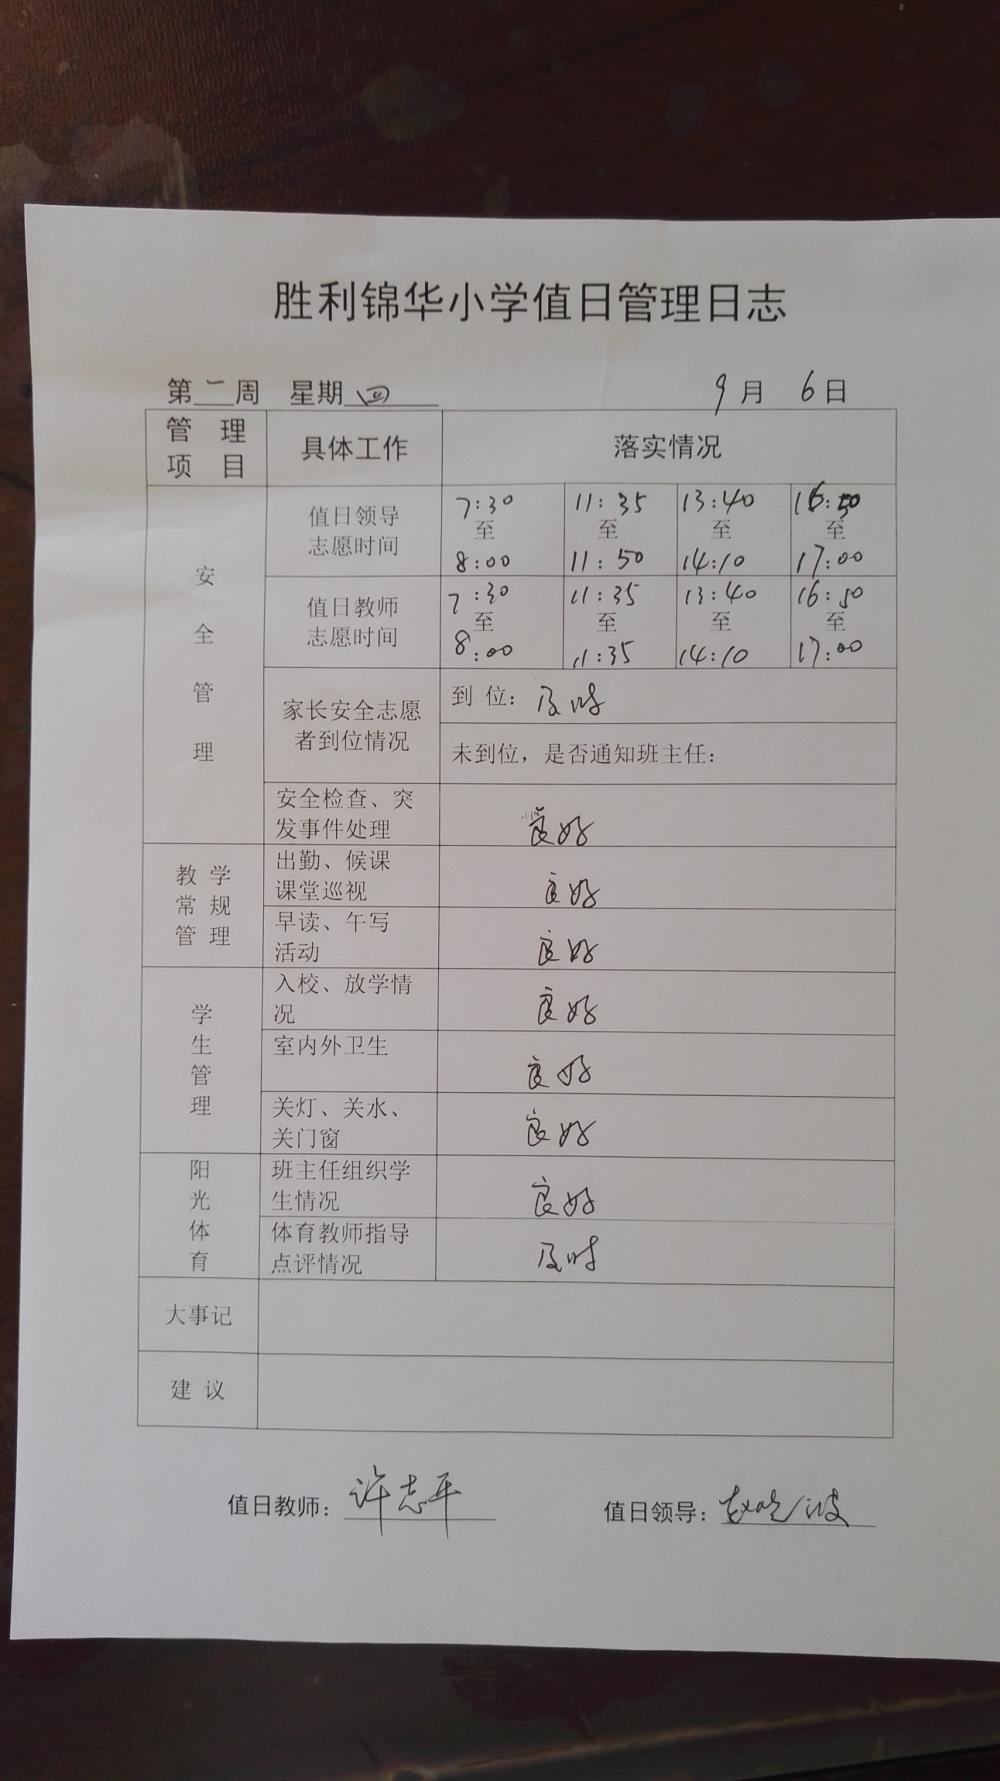 胜利锦华小学值日管理日志
第二周 星期四 9月 6日
管理项目 具体工作 落实情况
安全管理
值日领导志愿时间 7:30至8:00 11:35至11:50 13:40至14:10 16:50至17:00
值日教师志愿时间 7:30至8:00 11:35至11:35 13:40至14:10 16:50至17:00
家长安全志愿者到位情况 到 位：及时
未到位，是否通知班主任：
安全检查、突发事件处理 良好
教学常规管理
出勤、候课课堂巡视 良好
早读、午写活动 良好
学生管理
入校、放学情况 良好
室内外卫生 良好
关灯、关水、关门窗 良好
阳光体育
班主任组织学生情况 良好
体育教师指导点评情况 及时
大事记
建 议
值日教师：许志平 值日领导：赵晓波